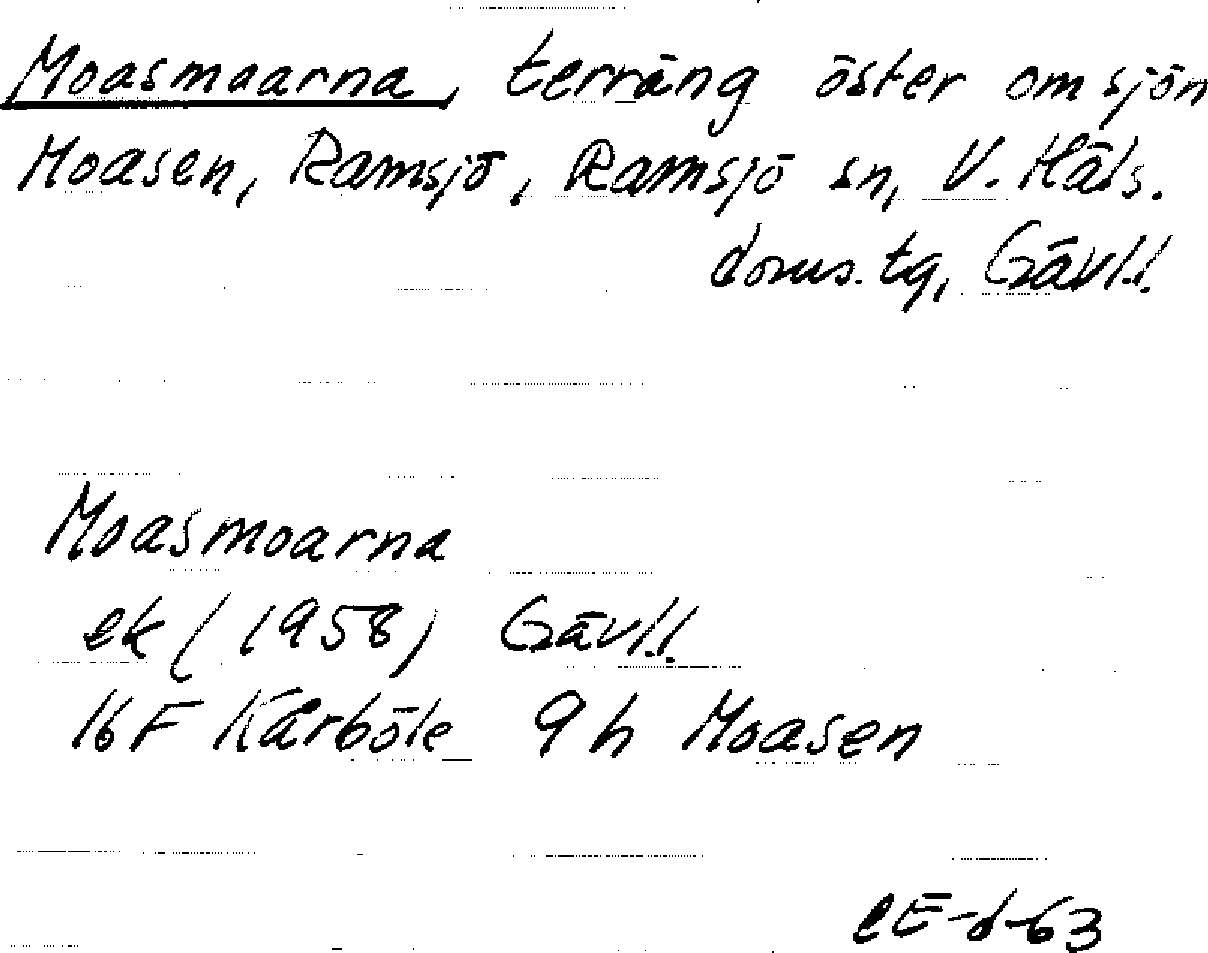 Moasmoarna, terräng öster om sjön
Moasen, Ramsjö, Ramsjö sn, V. Häls.
doms.tg, Gävl.l.
Moasmoarna
ek (1958) Gävl.l.
16F Kårböle 9h Moasen
CE-d-63